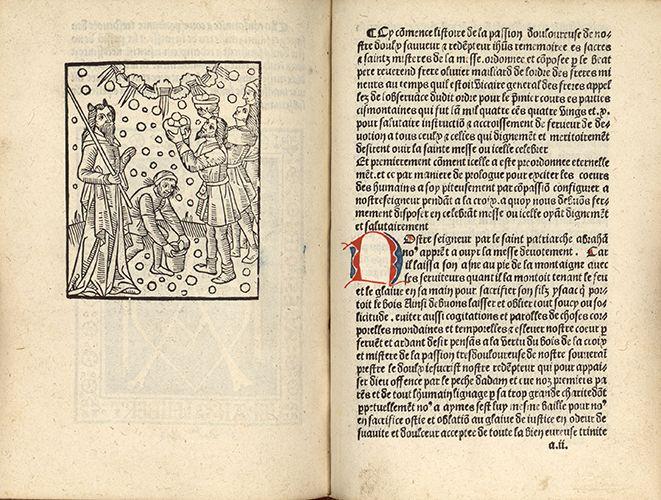 ¶ Cy cõmence listoire de la passion douloureuse de no-
stre doulx sauueur & redẽpteur ihũs rememoiree es sacres
& saintz misteres de la messe. ordonnee et cõposee p̱ le beat
pere reuerend frere oliuier maillard de lordre des freres mi
neurs au temps quil estoit vicaire general des freres appel
lez de lobseruãce dudit ordre pour le p̱mier cours es parties
cismontaines qui fut lã mil quatre cẽs quatre vingz et .x.
pour salutaire instructiõ & accroissement de ferueur de de-
uotion a tous ceulx & celles qui dignemẽt et meritoirement
desirent ouir la sainte messe ou icelle celebrer
Et premierement cõment icelle a este preordonee eternelle
mẽt. et ce par maniere de prologue pour exciter les coeurs
des humains a soy piteusement par cõpassiõ configurer a
nostre seigneur pendãt a la croix. a quoy nous debuõs fer-
mement disposer en celebrãt messe ou icelle oyãt dignemẽt
et salutairement
Nostre seigneur par le saint patriarche abrahã
noꝰ apprẽt a ouyr la messe deuotement. Car
il laissa son asne au pie de la montaigne auec
les seruiteurs quant il la montoit tenant le feu
et le glaiue en sa main pour sacrifier son filz ysaac q̃ por-
toit le bois Ainsi deuons laisser et oblier tout soucy ou so-
licitude. euiter aussi cogitations et parolles de choses cor-
porelles mondaines et temporelles & esleuer nostre coeur p̱
feruẽt et ardant desir pensãs a la vertu du bois de la croix
et mistere de la passion tresdouloureuse de nostre souuerai
prestre le doulx iesucrist nostre redẽpteur qui pour appai-
ser dieu offence par le peche dadam et eue noz premiers pa
rẽs et de tout lhumain lignage p̱ sa trop grande charite dõt
pp̱etuellemẽt noꝰ a aymes sest luy mesme baille pour noꝰ
en sacrifice ostie et oblatiõ au glaiue de iustice en odeur de
suauite et doulceur acceptee de toute la bien eureuse trinite
a.ii.